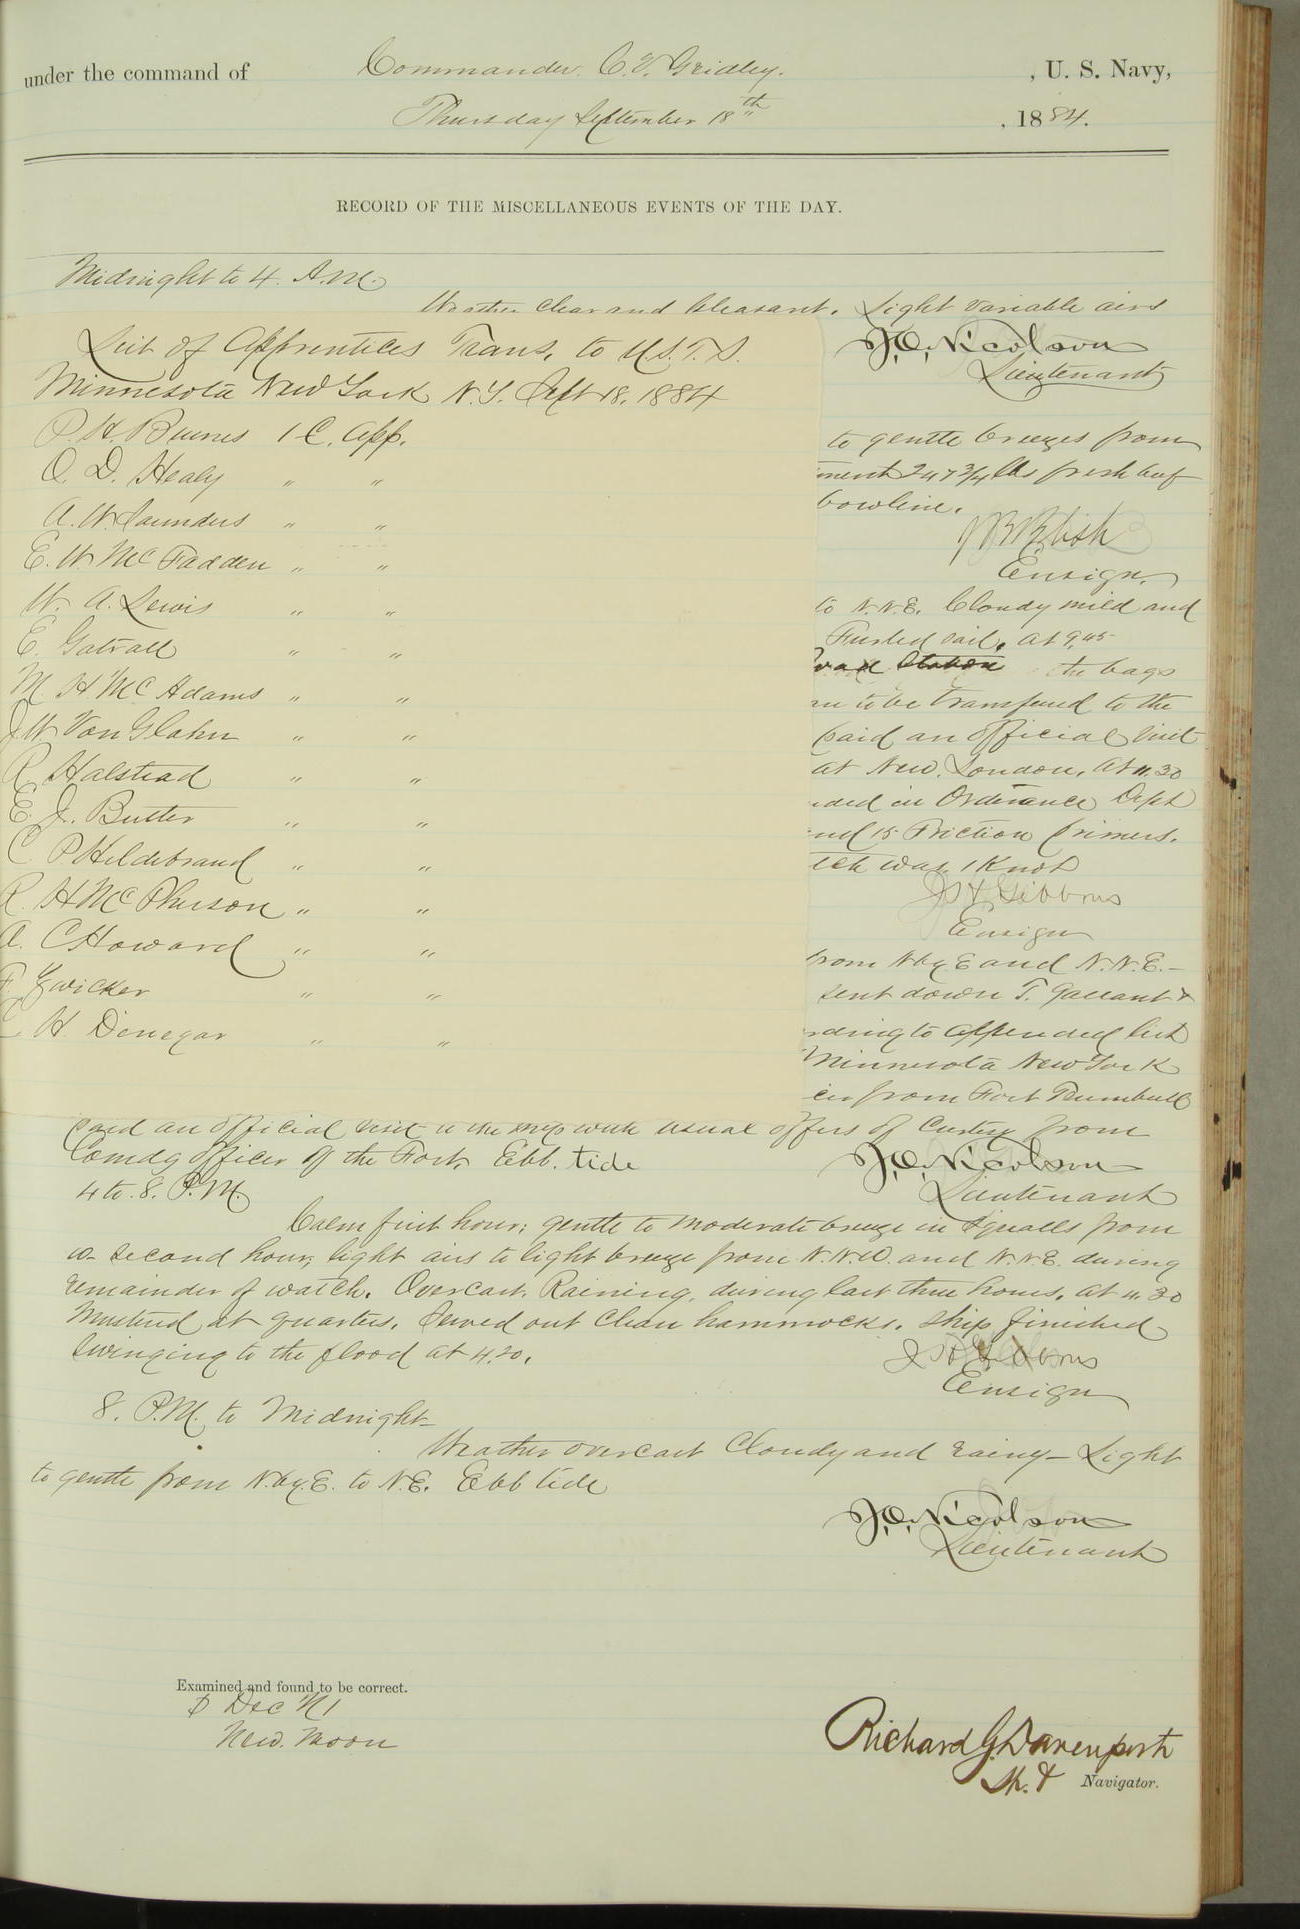 under the command of Commander C. V. Gridley. , U. S. Navy,
Thursday September 18th , 1884.
RECORD OF THE MISCELLANEOUS EVENTS OF THE DAY.
Midnight to 4. A.M.
Weather clear and pleasant. Light variable airs
J.O. Nicolson
Lieutenant
List of Apprentices Trans. to U.S.T.S.
Minnesota New York N.Y. Sept 18. 1884
P. H. Burnes 1 C. App.
O. D. Healy " "
A. W. Saunders " "
E. W. McFadden " "
W. A. Lewis " "
E. Gatrall " "
M. H. McAdams " "
J W Von Glahn " "
R Halstead " "
E. J. Butler " "
C P Hildebrand " "
R. H McPherson " "
A. C Howard " "
F. Zwicker " "
H. Denegar " "
to gentle breezes from
247 3/4 lbs fresh beef
bowline.
Ensign.
to N.N.E. Cloudy mild and
Furled sail. At 9.45
the bags
to be transfered to the
paid an official visit
at New London. At 11.30
in Ordinance Dept
15 Friction primers.
was 1 Knot
J H Gibbons
Ensign
from N by E and N.N.E.-
sent down T. Gallant &
to appended list
Minnesota New York
from Fort Trumbull
paid an official visit to the ship with usual offers of Curtesy from
Comdg officer of the Fort. Ebb. tide
J.O. Nicolson
Lieutenant
4 to 8. P.M.
Calm first hour; gentle to moderate breeze in squalls from
W- second hour; light airs to light breeze from N.N.W. and N.N.E. during
remainder of watch. Overcast. Raining, during last three hours. At 4.30
Mustered at quarters. Served out clean hammocks. Ship finished
swinging to the flood at 4.20.
J H Gibbons
Ensign
8. P.M. to Midnight-
Weather overcast cloudy and rainy- Light
to gentle from N.by.E. to N.E. Ebb tide
J.O. Nicolson
Lieutenant
Examined and found to be correct.
New. Moon
Richard G. Davenport
Navigator.